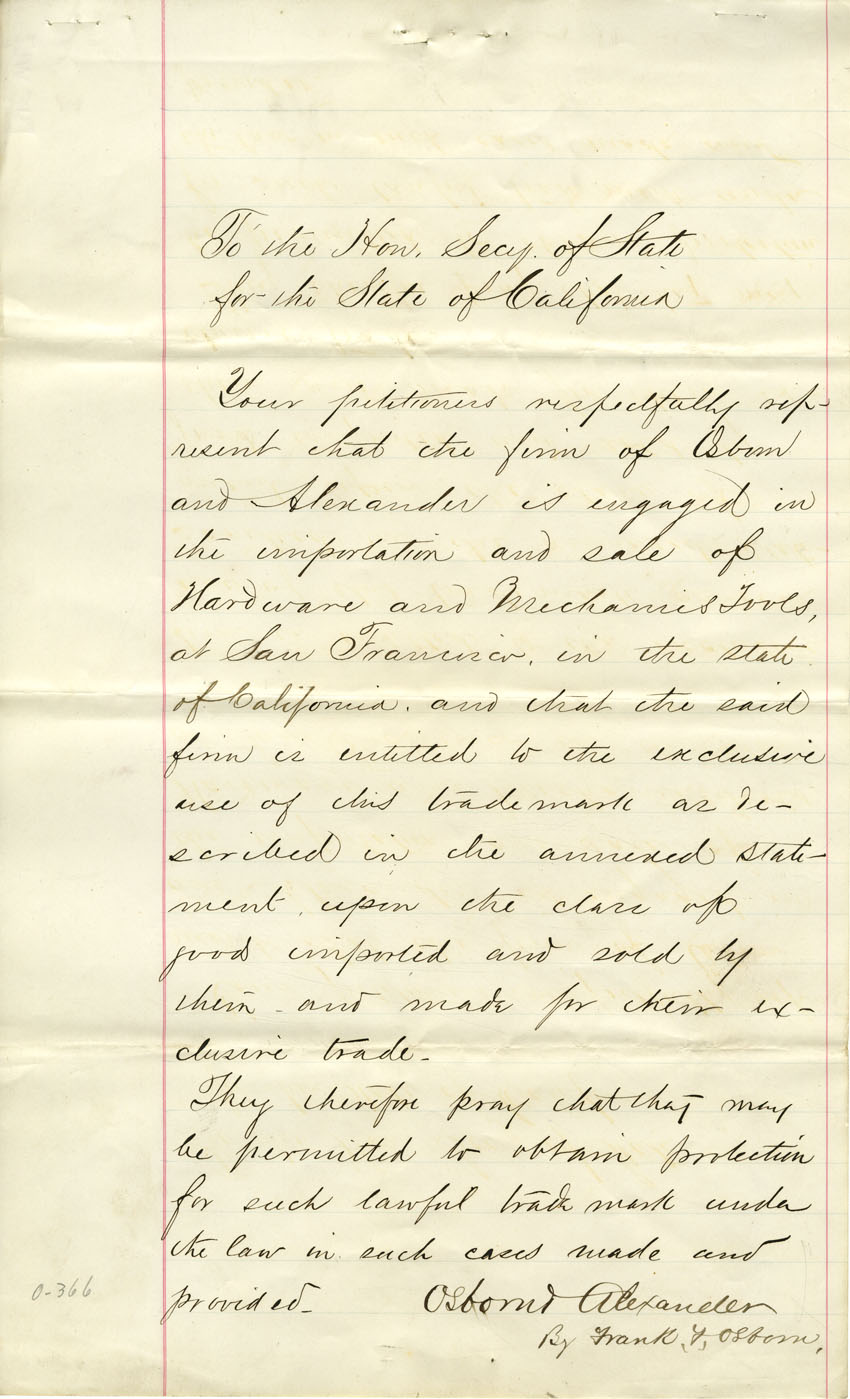 To the Hon. Secy. of State
for the State of California
Your petitioners respectfully rep-
resent that the firm of Osborn
and Alexander is engaged in
the importation and sale of
Hardware and Mechanics Tools,
at San Francisco, in the state
of California. and that the said
firm is entitled to the exclusive
use of this trade mark as de-
scribed in the annexed state-
ment, upon the class of
good imported and sold by
them - and made for their ex-
clusive trade -
They therefore pray that they may
be permitted to obtain protection
for such lawful trade mark under
the law in such cases made and
provided -
Osborn & Alexander
By Frank F, Osborn,
0-366